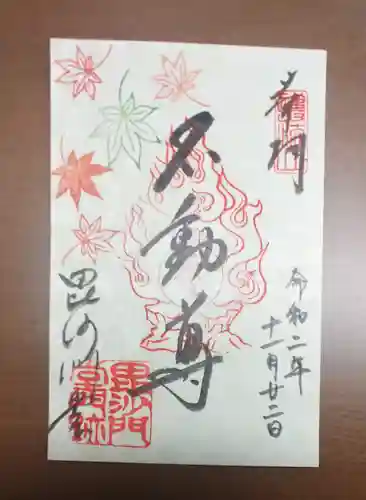 奉拝
令和二年
十一月廿二日
不動尊
毘沙門堂
毘沙門
堂門跡